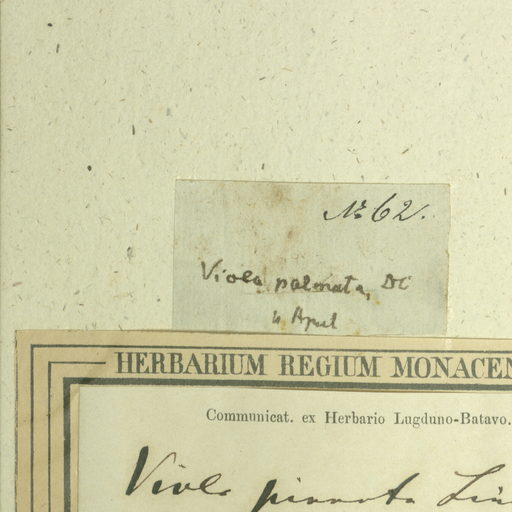 No 62.
Viola palmata, DC
4 April
HERBARIUM REGIUM MONACEN
Communicat. ex Herbario Lugduno-Batavo.
Viola pinnata Lin